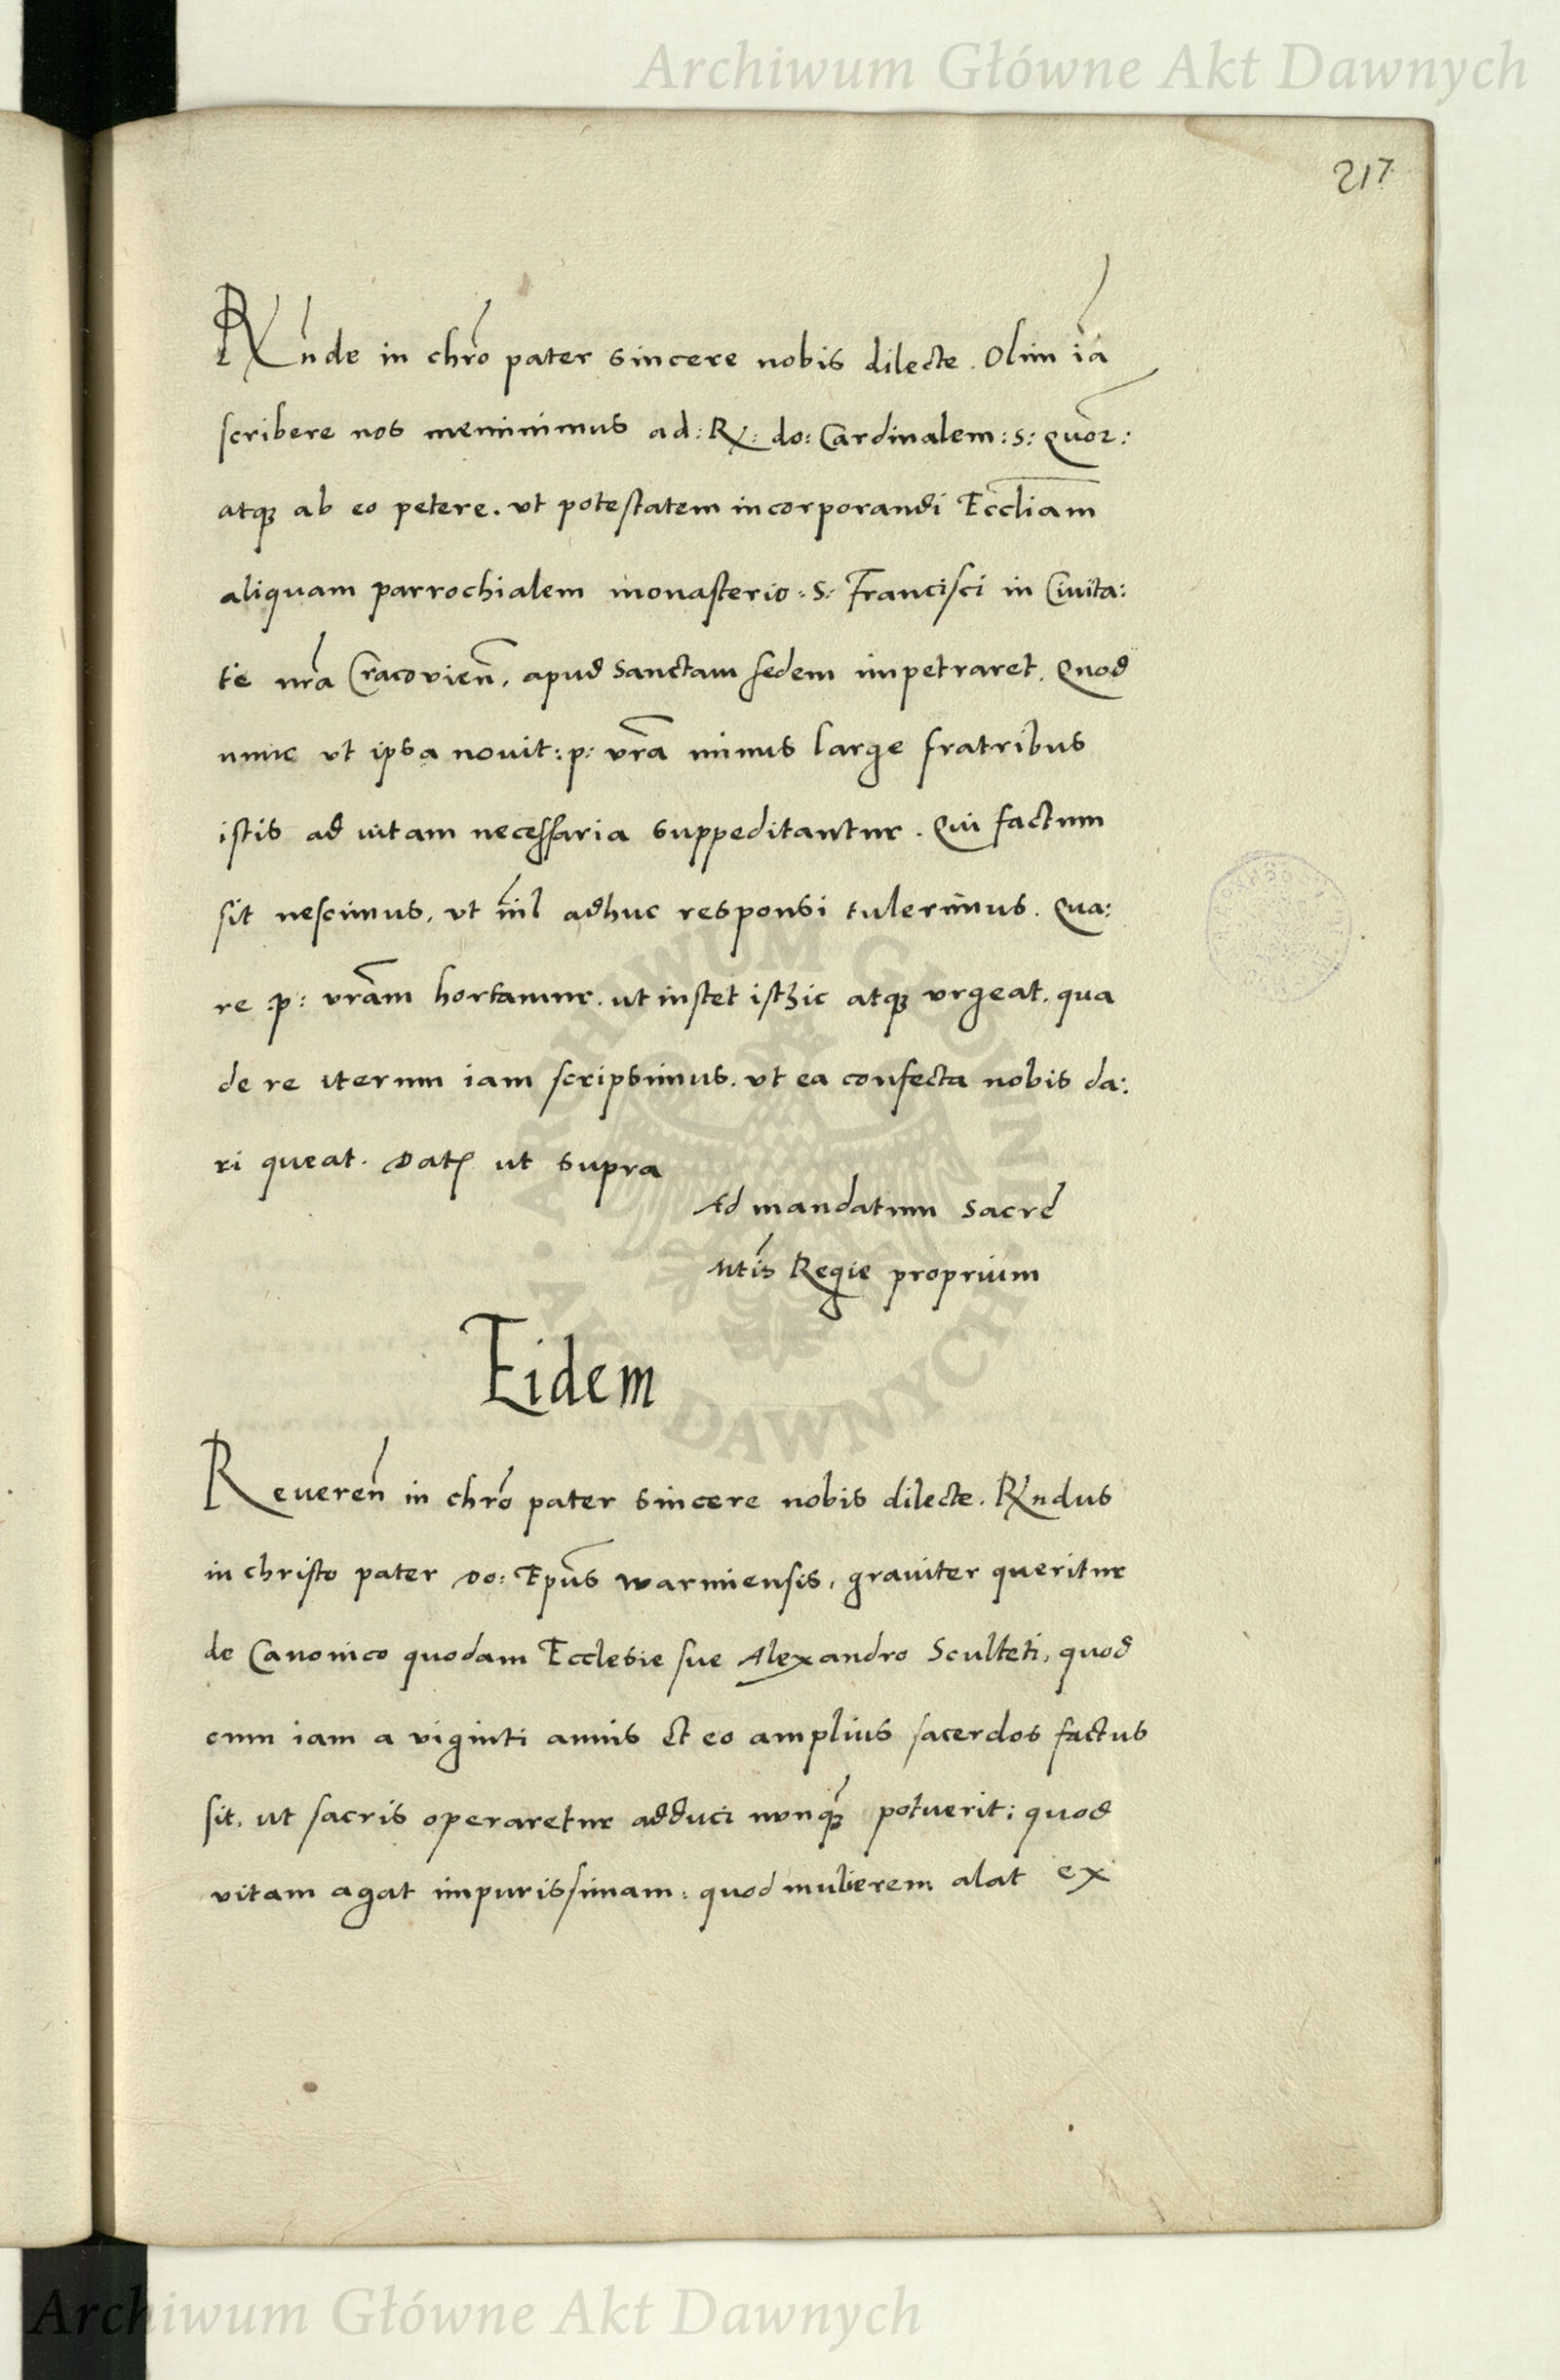 Archiwum Główne Akt Dawnych
217
Rnde in chro pater sincere nobis dilecte. Olim ia
scribere nos meminimus ad: R: do: Cardinalem: s: Quor:
atq; ab eo petere. ut potestatem incorporandi Eccliam
aliquam parrochialem monasterio: S: Francisci in Civita:
te nra Cracovien, apud Sanctam sedem impetraret. Quod
nunc ut ipsa novit: p: vra minus large fratribus
istis ad vitam necessaria suppeditantur. Qui factum
sit nescimus, ut nil adhuc responsi tulerimus. Qua:
re :p: vram hortamur. ut instet isthic atq; urgeat. qua
de re iterum iam scripsimus. ut ea confecta nobis da:
ri queat. Dat ut supra
Ad mandatum Sacre
Mtis Regie proprium
Eidem
Reveren in chro pater sincere nobis dilecte. Rndus
in christo pater do: Epus warmiensis, graviter queritur
de Canonico quodam Ecclesie sue Alexandro Sculteti, quod
cum iam a viginti annis et eo amplius sacerdos factus
sit, ut sacris operaretur adduci nunq; potuerit: quod
vitam agat impurissimam: quod mulierem alat ex
ARCHIWUM GŁÓWNE AKT DAWNYCH
Archiwum Główne Akt Dawnych